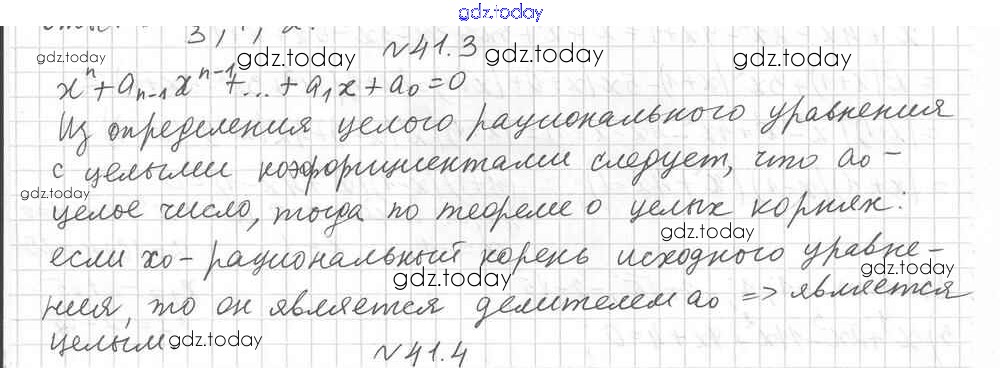 gdz.today
№41.3
gdz.today gdz.today gdz.today gdz.today
xⁿ + aₙ₋₁xⁿ⁻¹ + ... + a₁x + a₀ = 0
Из определения целого рационального уравнения
с целыми коэффициентами следует, что a₀ –
gdz.today
целое число, тогда по теореме о целых корнях:
gdz.today
если x₀ – рациональный корень исходного уравне-
gdz.today gdz.today
ния, то он является делителем a₀ => является
целым gdz.today
№41.4